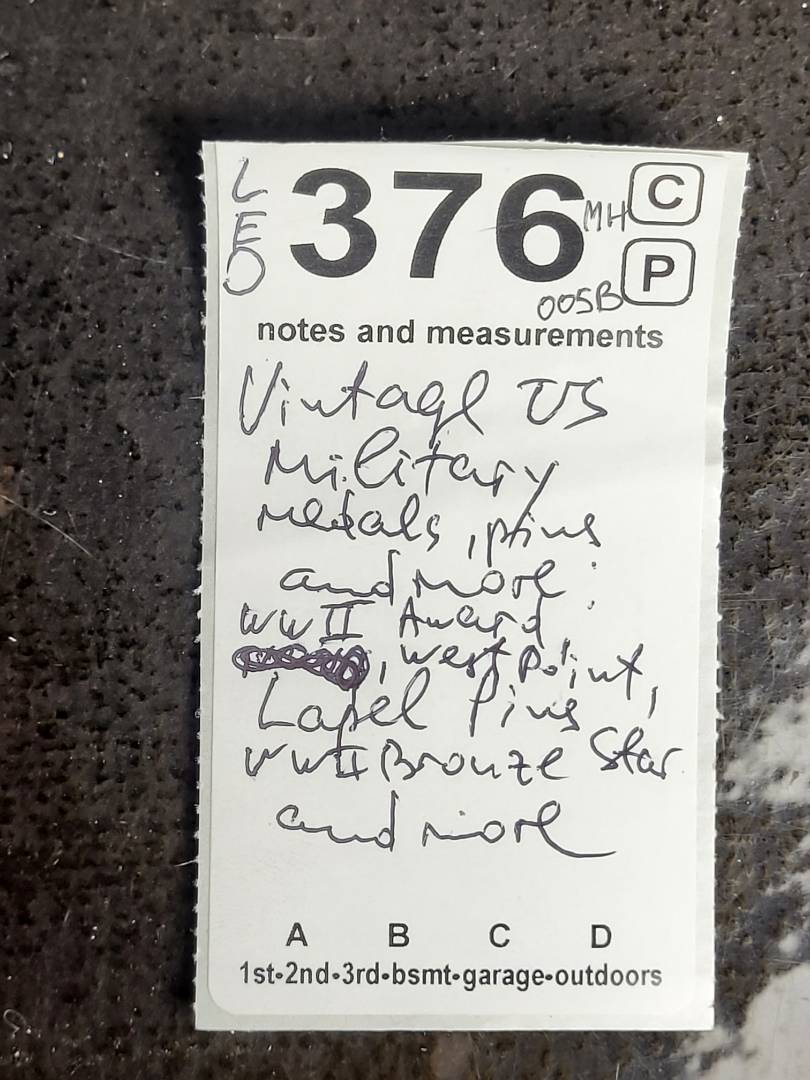 LEO 376 MH C
005B P
notes and measurements
Vintage US
Military
medals, pins
and more:
WWII Award
, West Point,
Lapel Pins
WWII Bronze Star
and more
A B C D
1st•2nd•3rd•bsmt•garage•outdoors